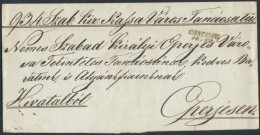 934 Szab. kir. Kassa Város Tanácsától
Nemes Szabad Királyi Eperjes Váro
sa Tekintetes Tanácsának, kedves Ba
rátinak és Atyánkfiainak
Hivatalból
Eperjesen